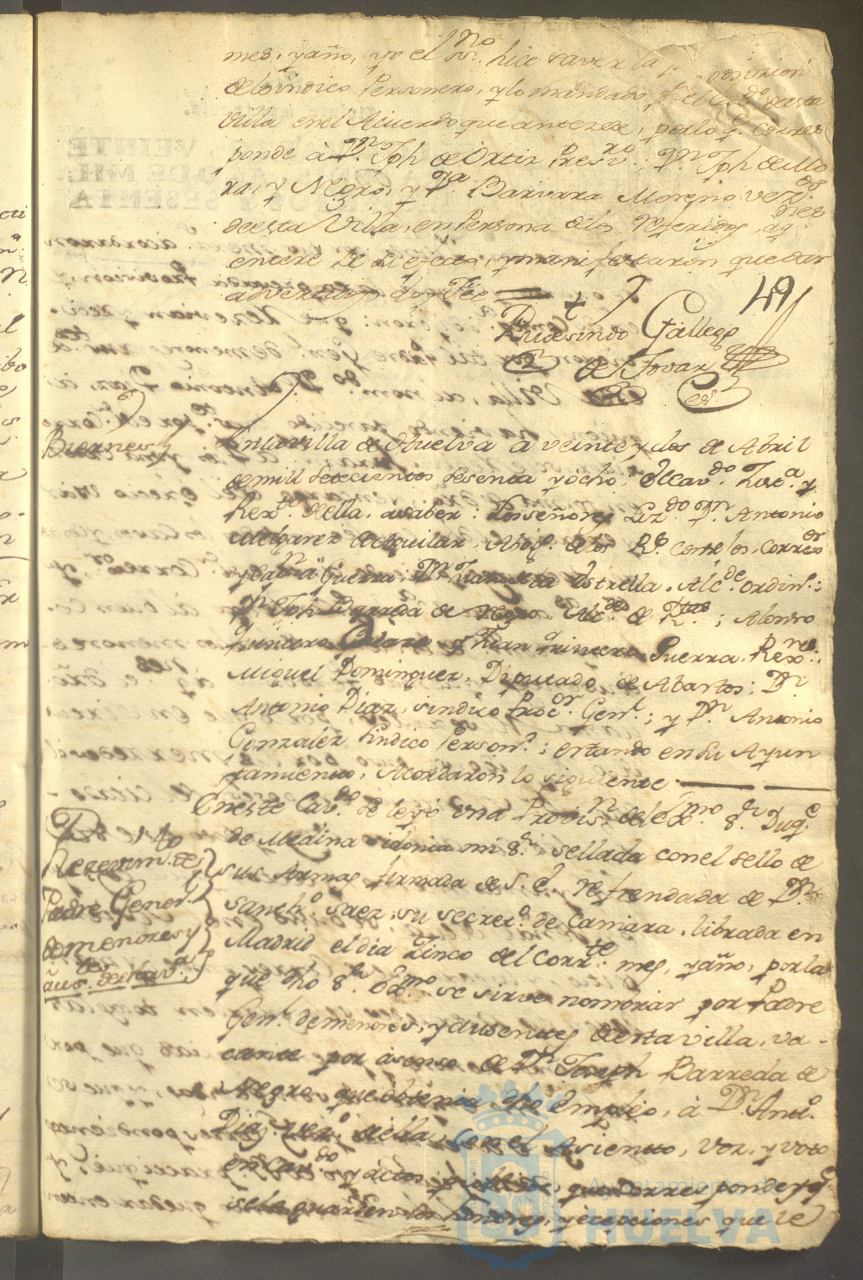 mes, y año, yo el ss.no hice saver la proposicion
del sindico Personero, y lo mandado p.r el Cav.do de esta
villa en el Acuerdo que antezede, por lo q.e corres
ponde à D.n Joph de Ortiz Presv.ro; D.n Joph de Mo
ra, y Negro, y D.a Barvara Moreno vez.os
de esta Villa, en Persona de los referidos, aq.nes
enteré de su efecto, y manifestaron quedar
advertidos doy Fee
49
Rudesindo Gallego
de Tovar
Biernes
En la villa de Huelva a veinte y dos de Abril
de mill setecientos sesenta y ocho. El Cav.do Just.a y
Rex.to de ella, a saber: los señores Liz.do D.n Antonio
Melgarez de Aguilar, Abog.do de los R.s Consejos, Correx.or
y Cap.n à Guerra; D.n Juan de la Estrella, Alc.de Ordin.o;
D.n Joph Barreda de Negro, Alc.de de ; Alonso
Quintero y Juan Quintero Guerra Rex.res;
Miguel Dominguez, Diputado de Abastos; D.n
Antonio Diaz, sindico Proc.or Gen.l; y D.n Antonio
Gonzalez sindico Person.o; estando en su Ayun
tamiento, Acordaron lo siguiente
Rezevim.to de
Padre Gener.l
de menores y
aus.tes de esta v.a
En este Cav.do se leyó una Provis.n del Ex.mo S.r Duq.e
de Medina sidonia mi S.r sellada con el sello de
sus Armas firmada de S. E. refrendada de D.n
Sanch.o Saez, su secret.o de Camara, librada en
Madrid el dia Zinco del Corr.te mes, y año, por la
que dho S.r Ex.mo se sirve nombrar por Padre
Gen.l de menores, y ausentes de esta villa, va-
cante por asenso de D.n Joseph Barreda de
Negro, que obtenia dho Empleo, à D.n Ant.o
Diaz vez.o de ella, con el Asiento, voz, y voto
en Cav.do y actos publicos, que corresponde y q.e
se le guarden los honores, y ecepciones que le
Ayuntamiento
HUELVA